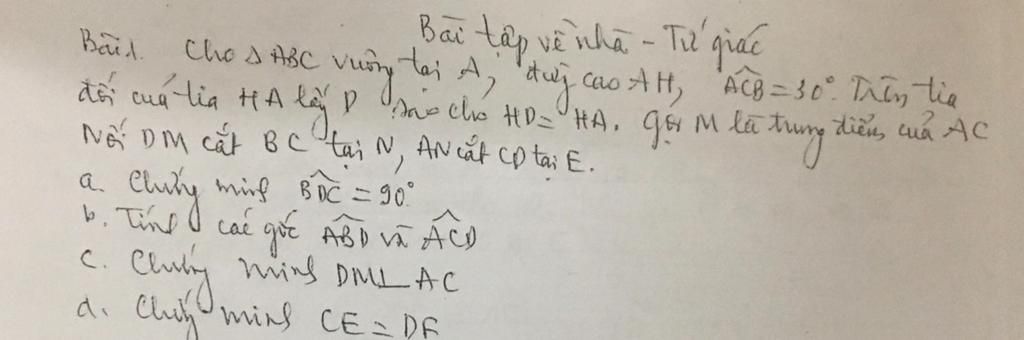 Bài tập về nhà - Tứ giác
Bài 1. Cho Δ ABC vuông tại A, đường cao AH, ACB = 30°. Trên tia
đối của tia HA lấy D sao cho HD = HA. Gọi M là trung điểm của AC
Nối DM cắt BC tại N, AN cắt CD tại E.
a. Chứng minh BDC = 90°
b. Tính các góc ABD và ACD
c. Chứng minh DM ⊥ AC
d. Chứng minh CE = DE